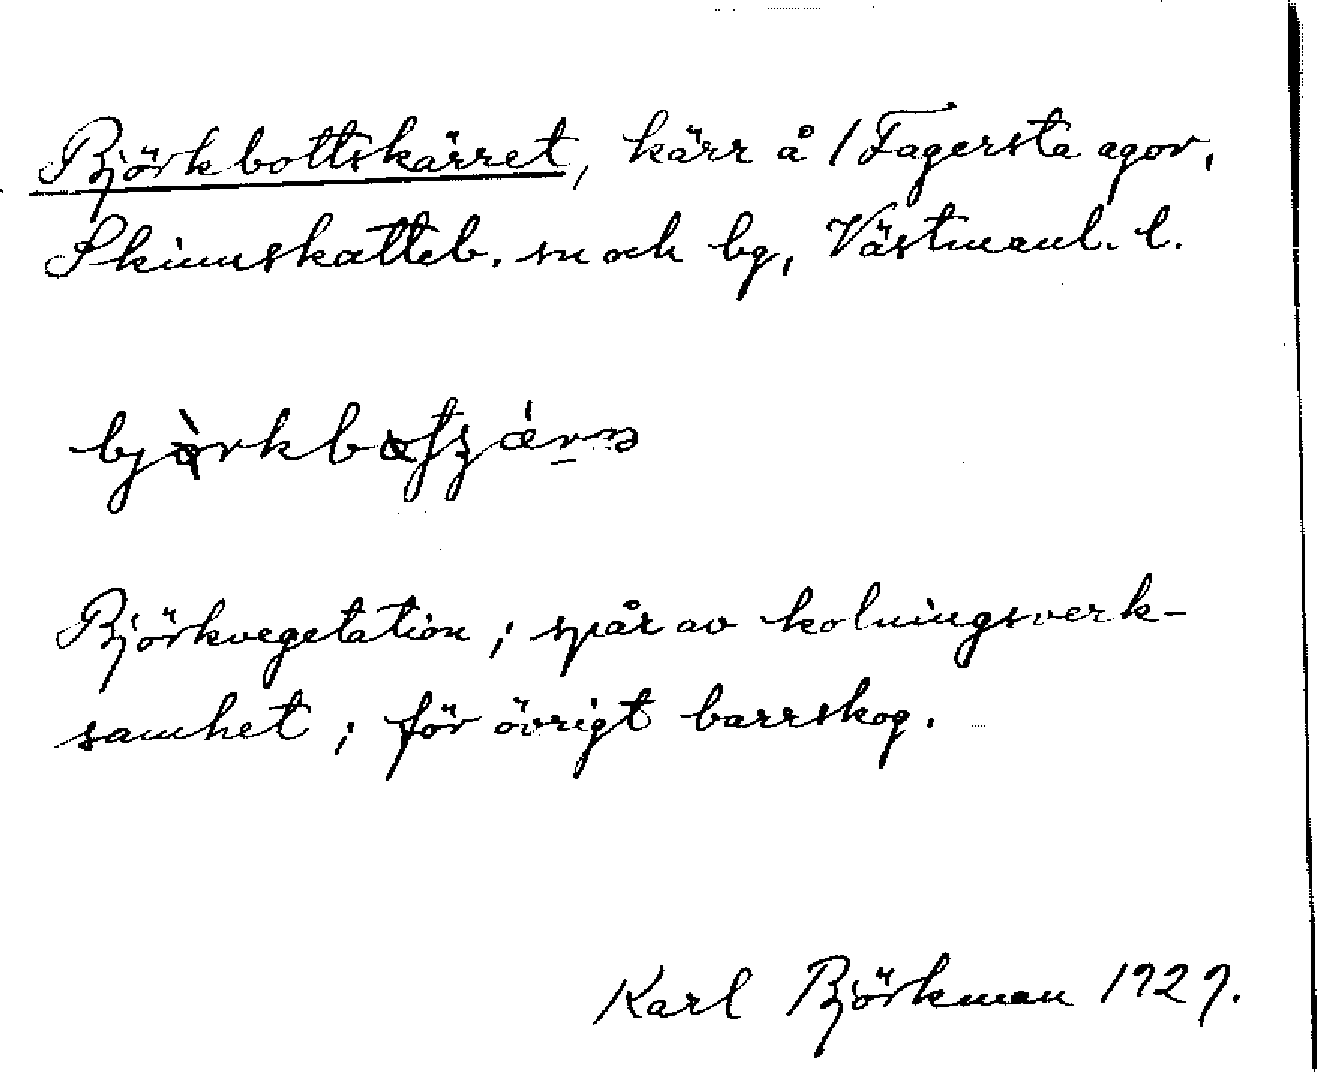 Björkbottskärret, kärr å /Fagersta agor,
Skinnskatteb. sn och bg, Västmanl. l.
Björkvegetation ; spår av kolningsverk-
samhet ; för övrigt barrskog.
Karl Björkman 1929.